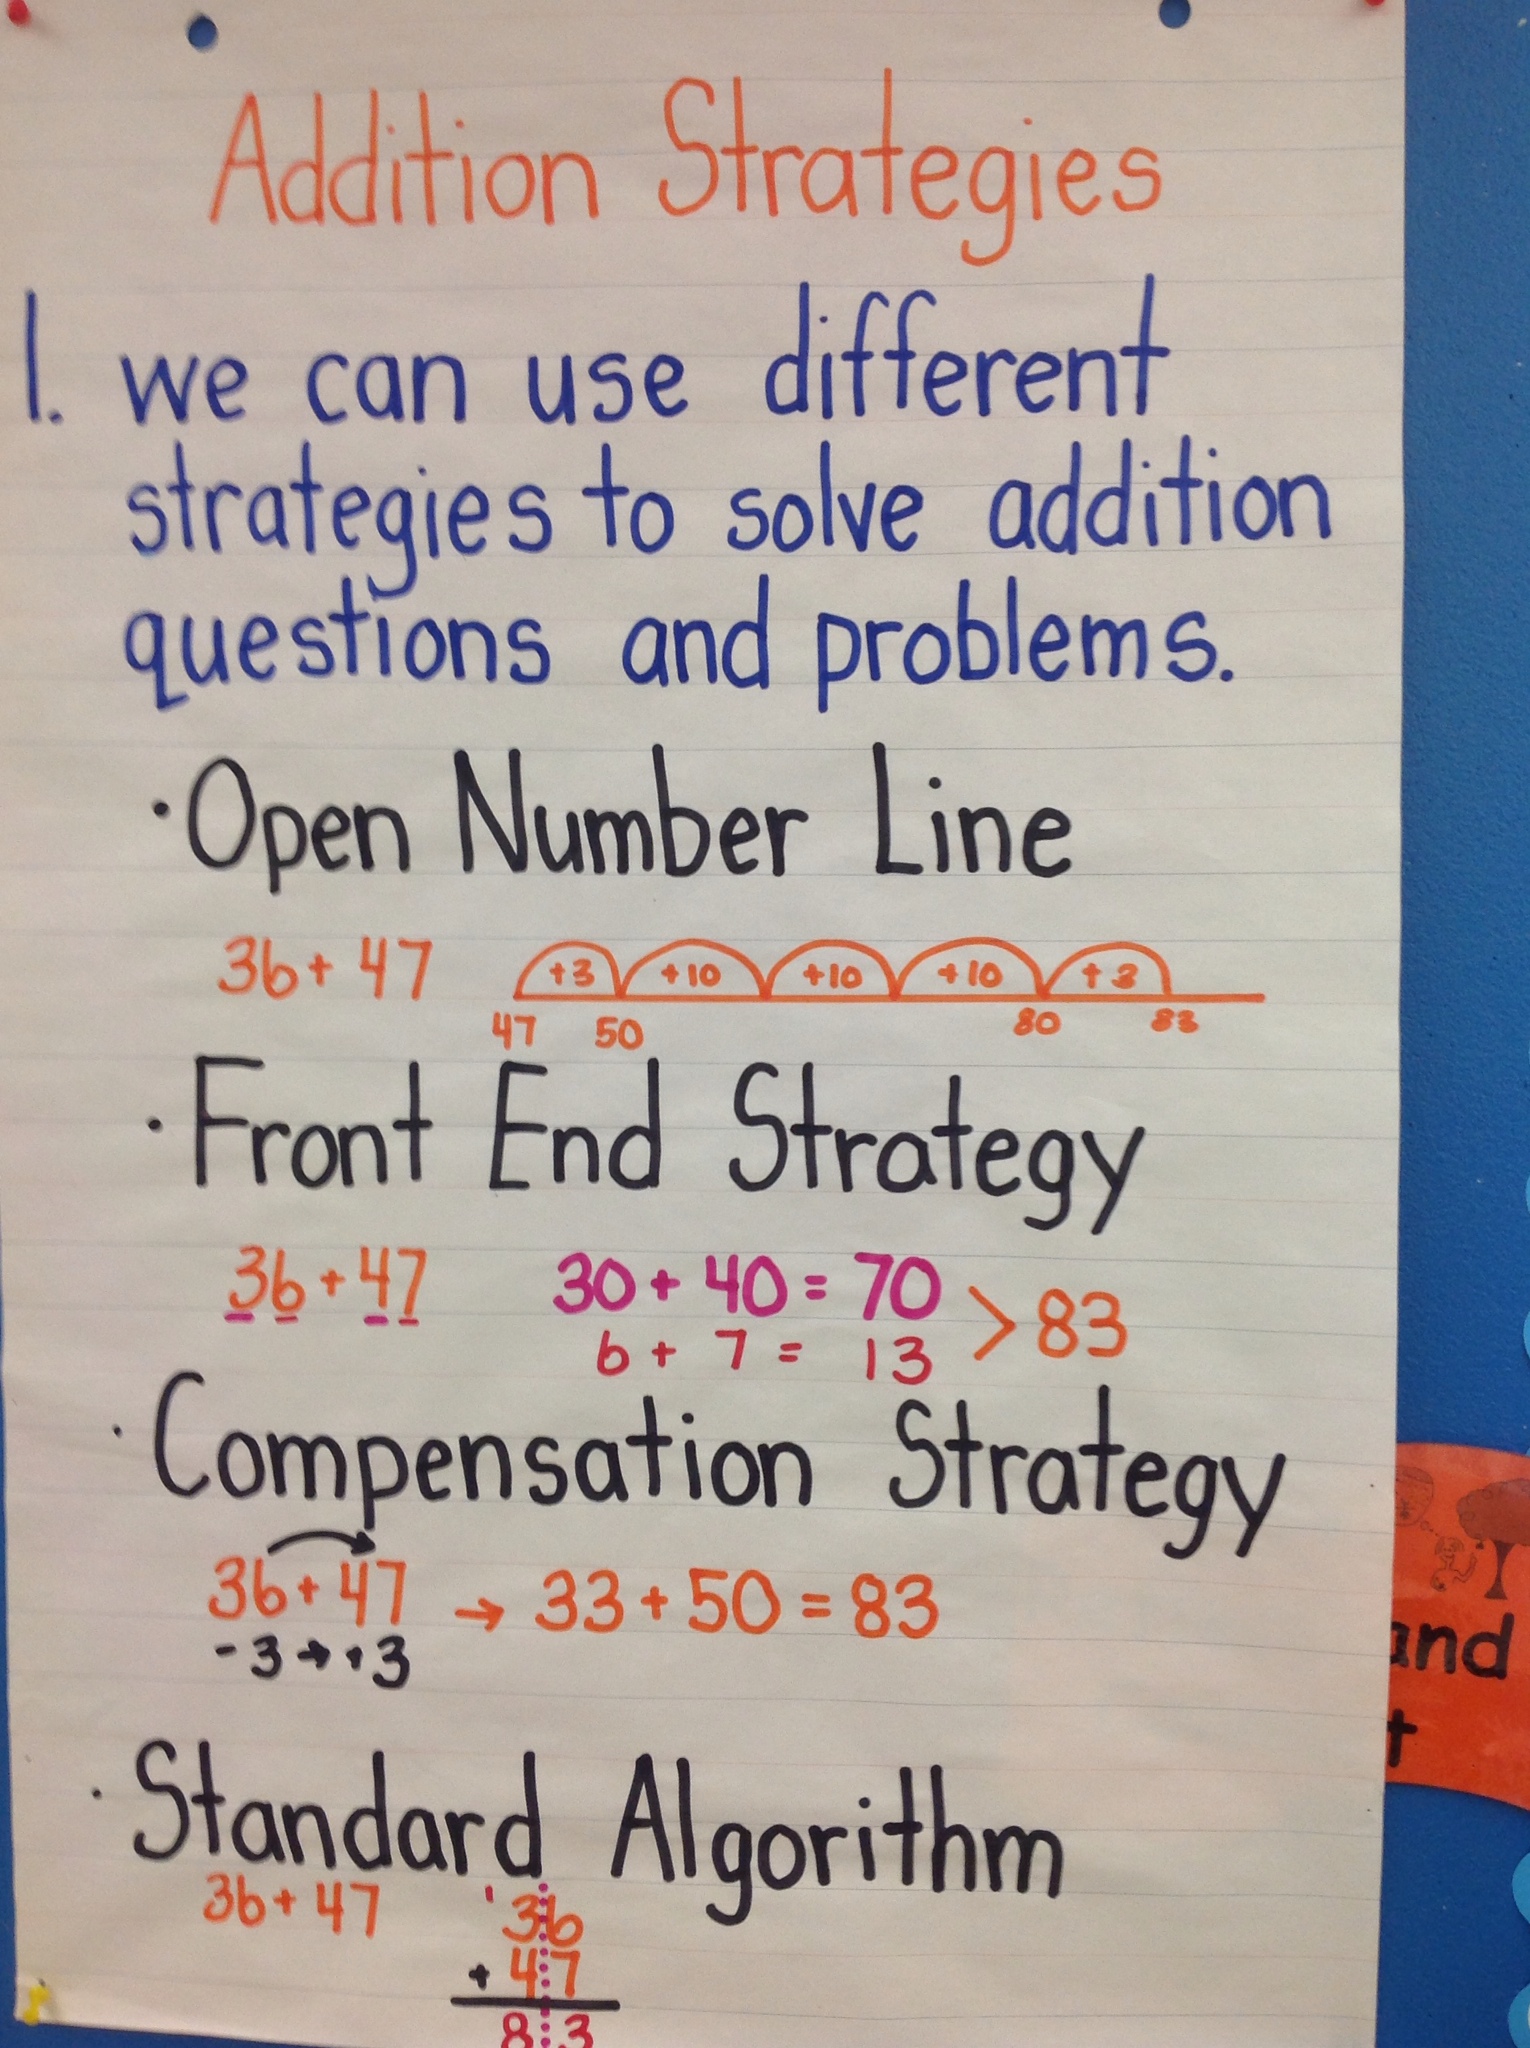 Addition Strategies
1. we can use different
strategies to solve addition
questions and problems.
· Open Number Line
36 + 47 +3 +10 +10 +10 +3
47 50 80 83
· Front End Strategy
36 + 47 30 + 40 = 70 > 83
6 + 7 = 13
· Compensation Strategy
36 + 47 → 33 + 50 = 83
-3 → +3
· Standard Algorithm
36 + 47 ' 36
+ 47
83
and
t